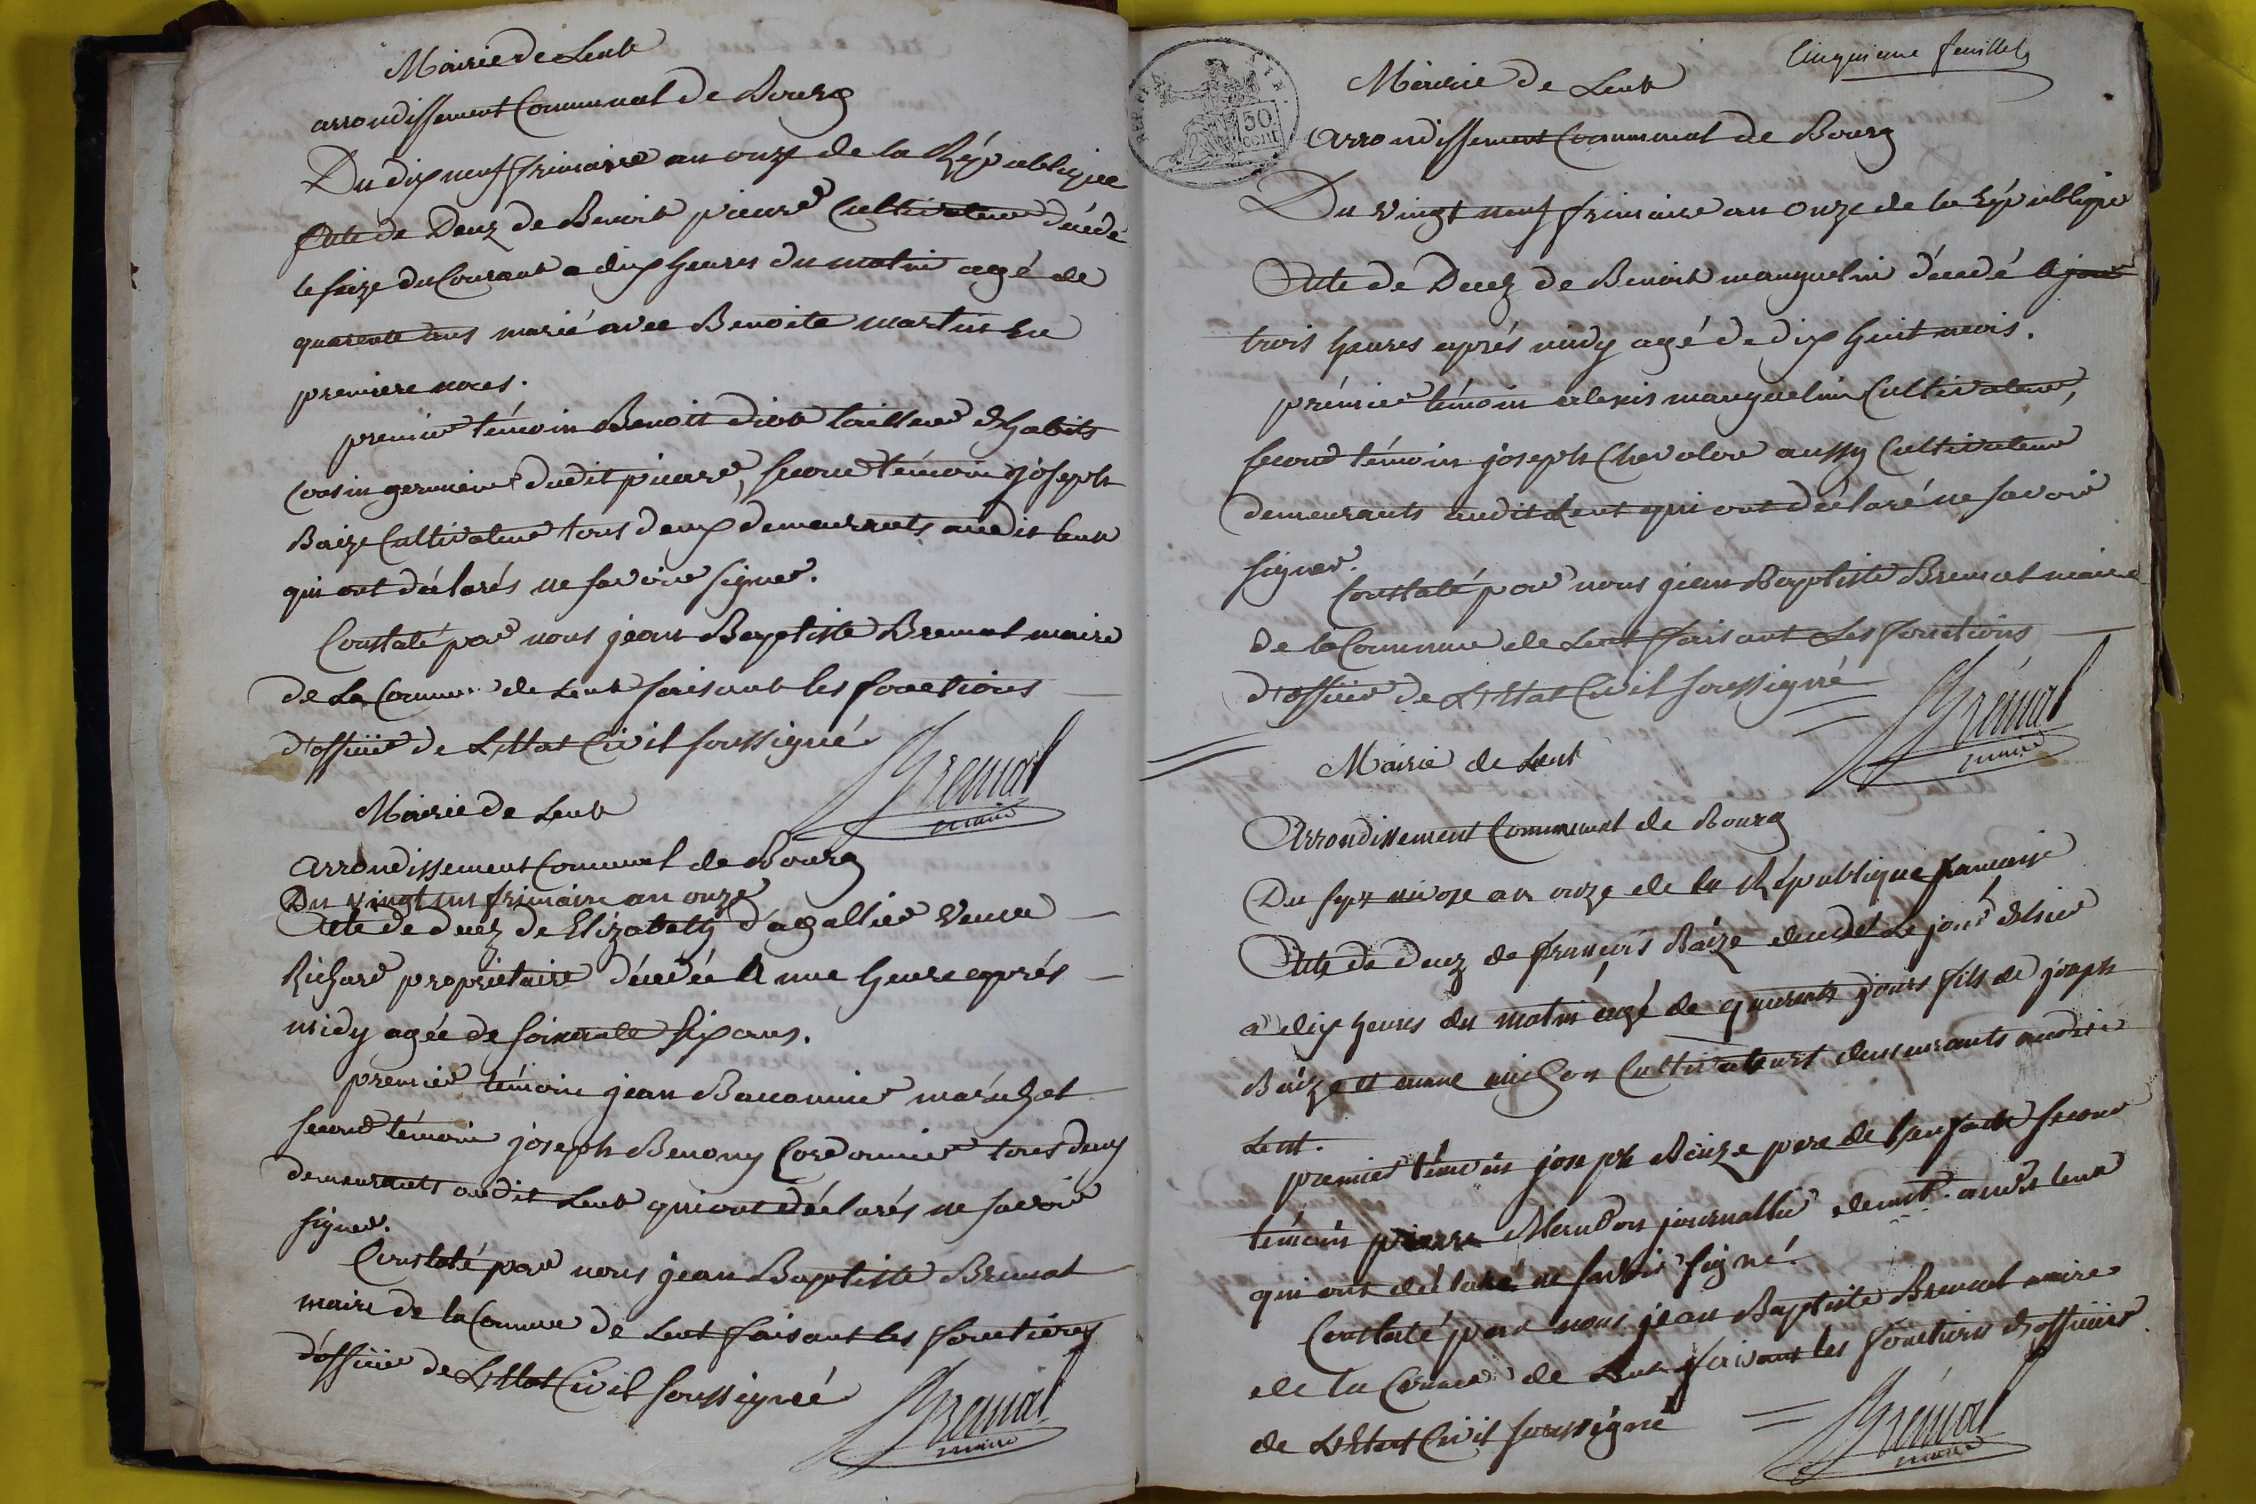 Mairie de Lent
arrondissement Communal de Bourg
Du dix neuf frimaire an onze de la République
Acte de Decez de Benoit pierre Cultivateur décédé
le seize du Courant a dix heures du matin agé de
quarente ans marié avec Benoite martin en
premiere noces.
premier témoin Benoit tailleur d'habits
Cousin germain dudit pierre, second témoin joseph
Baize Cultivateur tous deux demeurants audit lent
qui ont déclarés ne savoir signer.
Constaté par nous jean Baptiste Bremal maire
de La Commune de Lent faisant les fonctions
d'officier de L'Etat Civil soussigné
Bremal
maire
Mairie de Lent
arrondissement Communal de Bourg
Du vingt un frimaire an onze
Acte de decez de Elizabeth d'agallier veuve
Richard propriétaire décédée A une heure après
midy agée de soixante six ans.
premier témoin jean maréchal
second témoin joseph Benony Cordonnier tous deux
demeurants audit Lent qui ont déclarés ne savoir
signer.
Constaté par nous jean Baptiste Bremal
maire de la Commune de Lent faisant les fonctions
d'officier de L'Etat Civil soussigné
Bremal
maire
Cinquieme feuillet
50
CENT
Mairie de Lent
Arrondissement Communal de Bourg
Du vingt neuf frimaire an onze de la République
Acte de Decez de Benoit manguelin décédé ce jour
trois heures après midy agé de dix huit mois.
prémier témoin alexis manguelin Cultivateur,
second témoin joseph Chevalor aussy Cultivateur
demeurants audit Lent qui ont déclaré ne savoir
signer.
Constaté par nous jean Baptiste Bremal maire
de la Commune de Lent faisant Les fonctions
d'officier de L'Etat Civil soussigné
Bremal
maire
Mairie de Lent
Arrondissement Communal de Bourg
Du sept nivose an onze de la République francaise
Acte de decez de francois Baize decedé Le jour d'hier
a dix heures du matin agé de quarente jours fils de joseph
Baize et anne michon Cultivateurs demeurants audit
Lent.
premier témoin joseph Baize pere de l'enfant second
témoin pierre Blandon journallier demt. audit lent
qui ont déclaré ne savoir signé.
Constaté par nous jean Baptiste Bremal maire
de la Commune de Lent faisant les fonctions d'officier
de L'Etat Civil soussigné
Bremal
maire